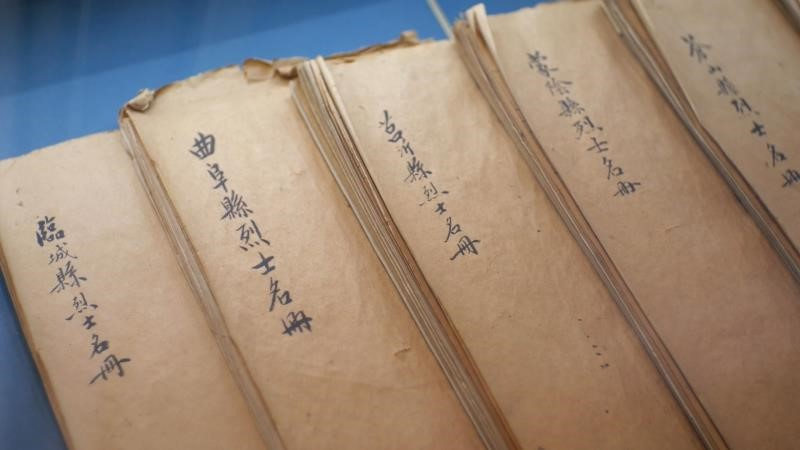 臨城縣烈士名冊
曲阜縣烈士名冊
莒沂縣烈士名冊
蒙陰縣烈士名冊
蒼山縣烈士名冊